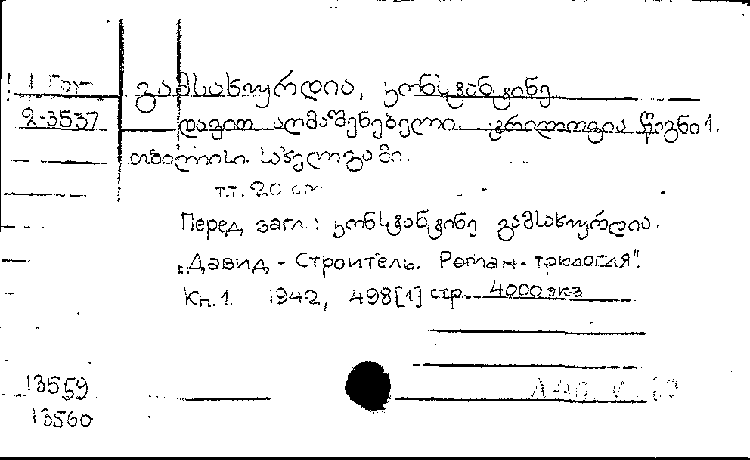 გამსახურდია, კონსტანტინე
2-3537
დავით აღმაშენებელი. ტრილოგია წიგნი 1.
თბილისი. სახელგამი.
т.т. 20 см
Перед загл.: კონსტანტინე გამსახურდია.
„Давид - Строитель. Роман - трилогия".
Кн. 1. 1942, 498[1] стр. 4000 экз
13559
13560